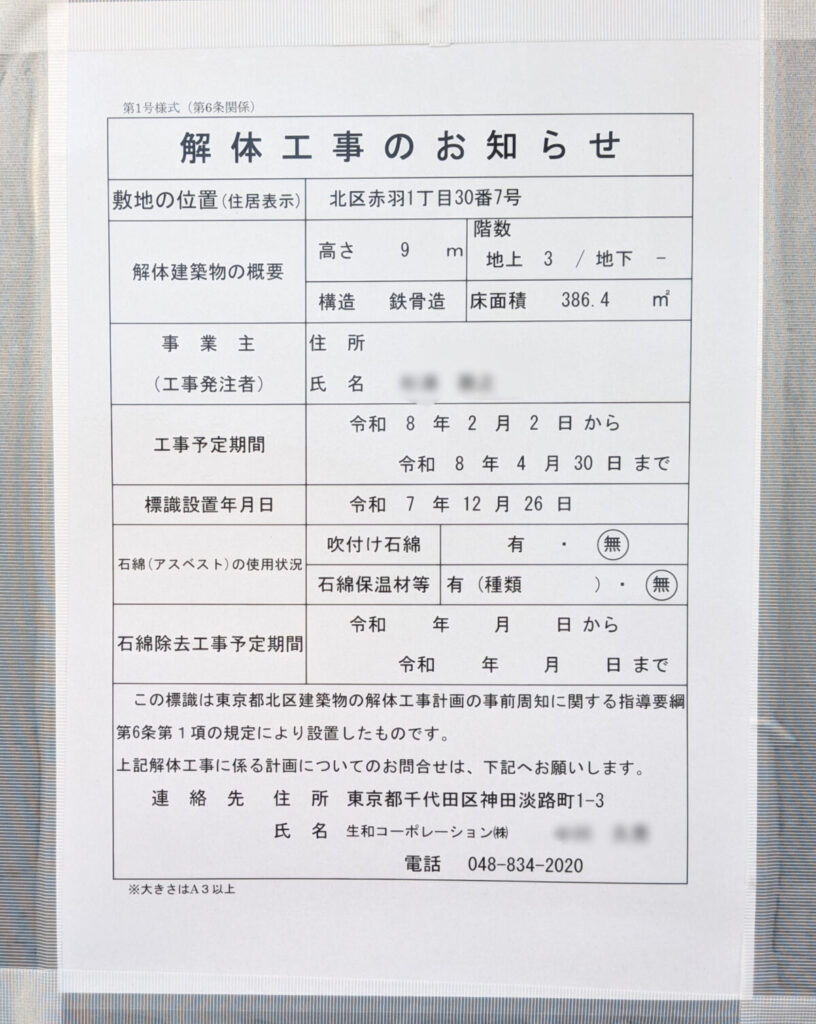 第1号様式（第6条関係）
解体工事のお知らせ
敷地の位置(住居表示) 北区赤羽1丁目30番7号
解体建築物の概要 高さ 9 m 階数 地上 3 / 地下 -
構造 鉄骨造 床面積 386.4 ㎡
事業主 住所
（工事発注者） 氏名
工事予定期間 令和 8 年 2 月 2 日 から
令和 8 年 4 月 30 日 まで
標識設置年月日 令和 7 年 12 月 26 日
石綿(アスベスト)の使用状況 吹付け石綿 有 ・ 無
石綿保温材等 有（種類 ）・ 無
石綿除去工事予定期間 令和 年 月 日 から
令和 年 月 日 まで
この標識は東京都北区建築物の解体工事計画の事前周知に関する指導要綱
第6条第１項の規定により設置したものです。
上記解体工事に係る計画についてのお問合せは、下記へお願いします。
連絡先 住所 東京都千代田区神田淡路町1-3
氏名 生和コーポレーション㈱
電話 048-834-2020
※大きさはA３以上